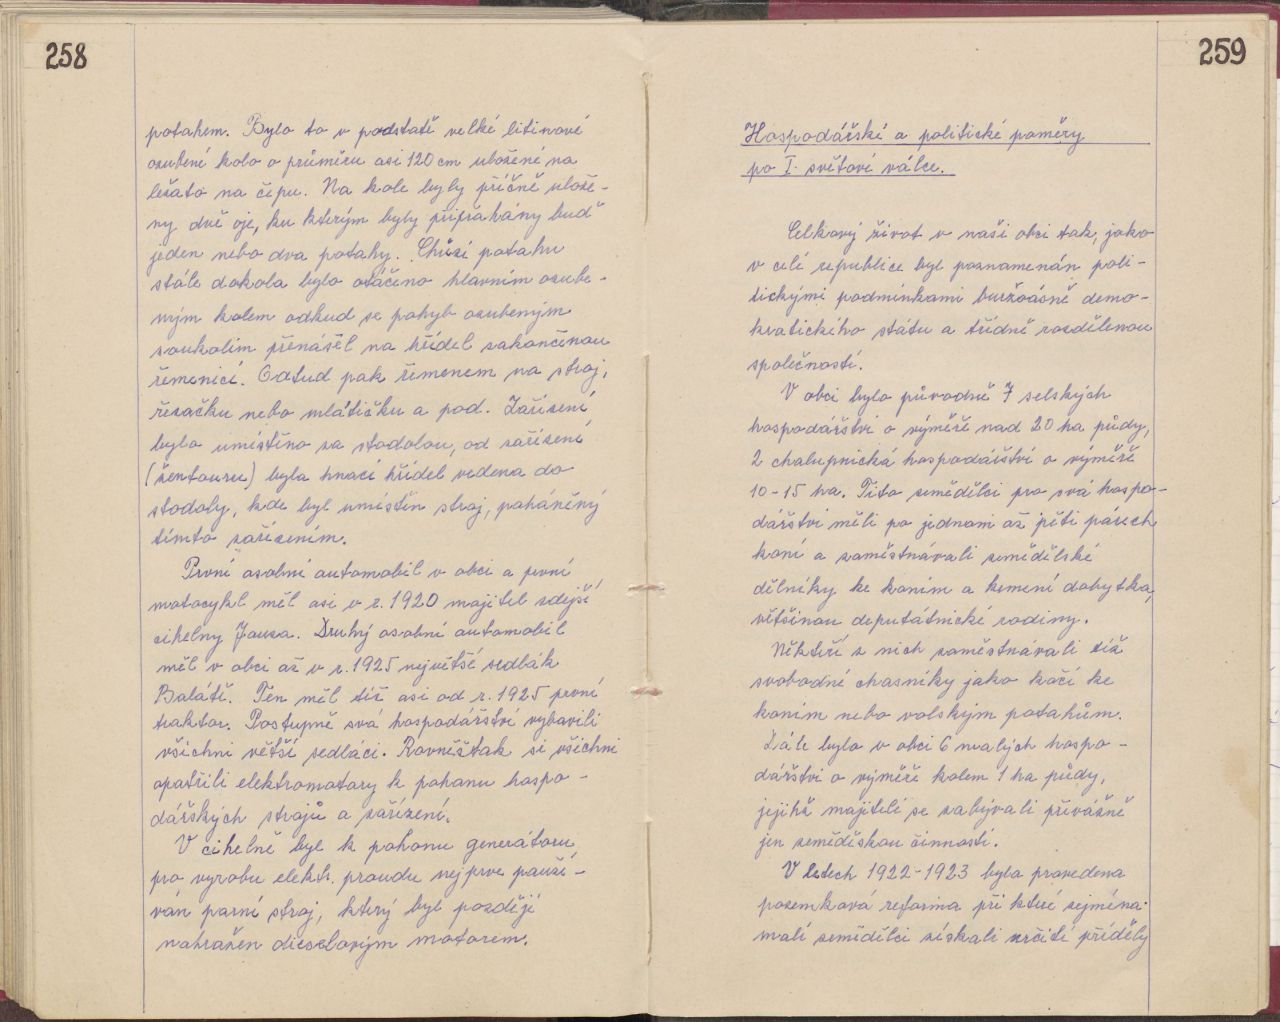 258
potahem. Bylo to v podstatě velké litinové
ozubené kolo o průměru asi 120 cm uložené na
ležato na čepu. Na kole byly příčně ulože-
ny dvě oje, ku kterým byly připřahány buď
jeden nebo dva potahy. Chůzí potahu
stále dokola bylo otáčeno hlavním ozube-
ným kolem odkud se pohyb ozubeným
soukolím přenášel na hřídel zakončenou
řemenicí. Odtud pak řemenem na stroj,
řezačku nebo mlátičku a pod. Zařízení
bylo umístěno za stodolou, od zařízení
(žentouru) byla hnací hřídel vedena do
stodoly, kde byl umístěn stroj, poháněný
tímto zařízením.
První osobní automobil v obci a první
motocykl měl asi v r. 1920 majitel zdejší
cihelny Jouza. Druhý osobní automobil
měl v obci až v r. 1925 největší sedlák
Balátě. Ten měl též asi od r. 1925 první
traktor. Postupně svá hospodářství vybavili
všichni větší sedláci. Rovněžtak si všichni
opatřili elektromotory k pohonu hospo-
dářských strojů a zařízení.
V cihelně byl k pohonu generátoru
pro vyrobu elektr. proudu nejprve použí-
ván parní stroj, který byl později
nahražen dieselovým motorem.
259
Hospodářské a politické poměry
po I. světové válce.
Celkový život v naší obci tak, jako
v celé republice byl poznamenán poli-
tickými podmínkami buržoásně demo-
kratického státu a třídně rozdělenou
společností.
V obci bylo původně 7 selských
hospodářství o výměře nad 20 ha půdy,
2 chalupnická hospodářství o výměře
10-15 ha. Tito zemědělci pro svá hospo-
dářství měli po jednom až pěti párech
koní a zaměstnávali zemědělské
dělníky ke koním a krmení dobytka,
většinou deputátnické rodiny.
Někteří z nich zaměstnávali též
svobodné chasníky jako kočí ke
koním nebo volským potahům.
Dále bylo v obci 6 malých hospo-
dářství o výměře kolem 1 ha půdy,
jejihž majitelé se zabývali převážně
jen zemědělskou činností.
V letech 1922-1923 byla provedena
pozemková reforma při které zejména
malí zemědělci získali určité příděly